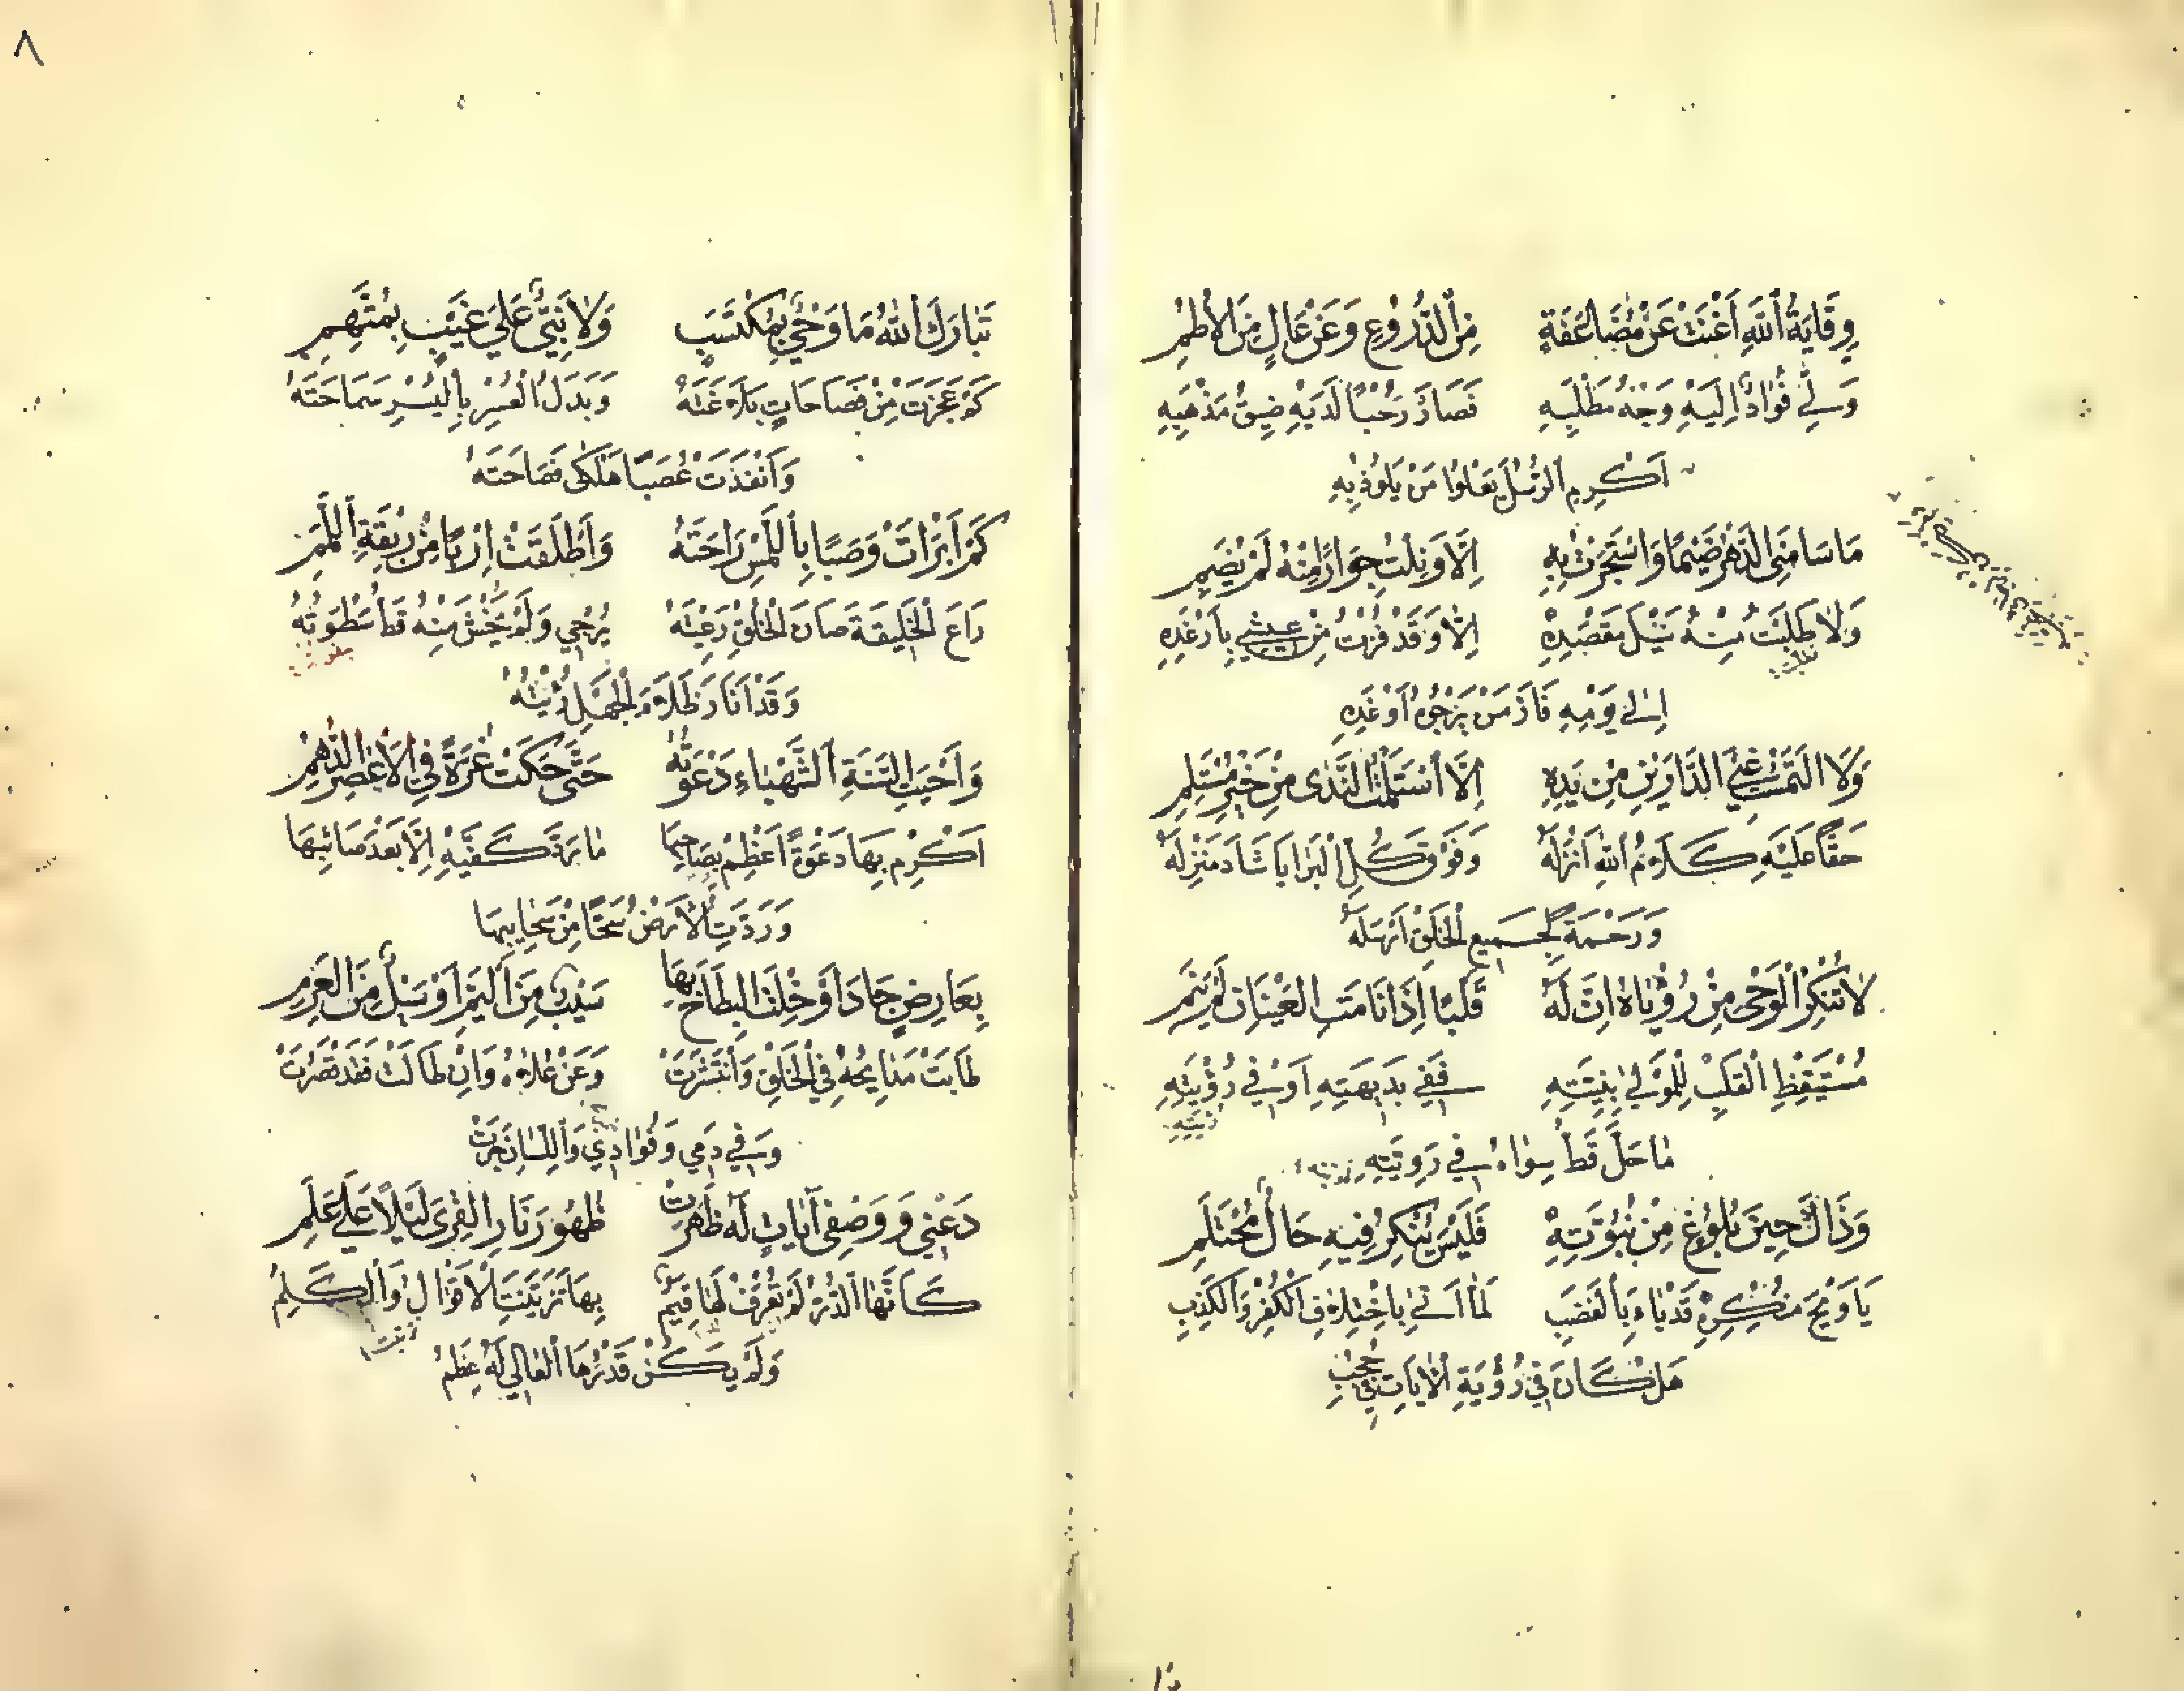 وِقَايَةُ اللهِ أَغْنَتْ عَنْ مُضَاعَفَةٍ مِنَ الدُّرُوْعِ وَعَنْ عَالٍ مِنَ الْأُطُمِ
وَلِي فُؤَادٌ إِلَيْهِ وَجْهُ مَطْلَبِهِ فَصَارَ رَحْبًا لَدَيْهِ ضِيْقُ مَذْهَبِهِ
أَكْرِمِ الرُّسْلَ يَعْلُوا مَنْ يَلُوذُ بِهِ
مَا سَامَنِي الدَّهْرُ ضَيْمًا وَاسْتَجَرْتُ بِهِ إِلَّا وَنِلْتُ جِوَارًا مِنْهُ لَمْ يُضَمِ
وَلَا طَلَبْتُ مِنْهُ نَيْلَ مَقْصَدِهِ إِلَّا وَقَدْ فُزْتُ مِنْ عَيْشِي بِأَرْغَدِهِ
إِلَى يَوْمِهِ فَازَ مَنْ يَرْجُوهُ أَوْ غَدِهِ
وَلَا الْتَمَسْتُ غِنَى الدَّارَيْنِ مِنْ يَدِهِ إِلَّا اسْتَلَمْتُ النَّدَى مِنْ خَيْرِ مُسْتَلَمِ
حَقًّا عَلَيْهِ كَلَامُ اللهِ أَنْزَلَهُ وَفَوْقَ كُلِّ الْبَرَايَا شَادَ مَنْزِلَهُ
وَرَحْمَةً لِجَمِيعِ الْخَلْقِ أَرْسَلَهُ
لَا تُنْكِرُ الْوَحْيَ مِنْ رُؤْيَاهُ إِنَّ لَهُ قَلْبًا إِذَا نَامَتِ الْعَيْنَانِ لَمْ يَنَمِ
مُسْتَيْقِظِ الْقَلْبِ لِلْمَوْلَى بِنِيَّتِهِ فَفِي بَدِيهَتِهِ أَوْ فِي رُؤْيَتِهِ
مَا حَلَّ قَطُّ سِوَاهُ فِي رَوِيَّتِهِ
وَذَاكَ حِينَ بُلُوغٍ مِنْ نُبُوَّتِهِ فَلَيْسَ يُنْكَرُ فِيهِ حَالُ مُحْتَلِمِ
يَا وَيْحَ مُنْكِرِهِ قَدْ بَاءَ بِالْغَضَبِ لَمَّا أَتَى بِاخْتِلَافِ الْكُفْرِ وَالْكَذِبِ
هَلْ كَانَ فِي رُؤْيَةِ الْآيَاتِ مِنْ عَجَبِ
٨
تَبَارَكَ اللهُ مَا وَحْيٌ بِمُكْتَسَبٍ وَلَا نَبِيٌّ عَلَى غَيْبٍ بِمُتَّهَمِ
كَمْ عَجَزَتْ مِنْ فَصَاحَاتٍ بَلَاغَتُهُ وَبَدَلَ الْعُسْرَ بِالْيُسْرِ سَمَاحَتُهُ
وَأَنْفَذَتْ عُصَبًا هَلْكَى فَصَاحَتُهُ
كَمْ أَبْرَأَتْ وَصِبًا بِاللَّمْسِ رَاحَتُهُ وَأَطْلَقَتْ أَرِبًا مِنْ رِبْقَةِ اللَّمَمِ
رَاعَ الْخَلِيقَةَ صَانَ الْخَلْقَ رَعْيَتُهُ يُرْجَى وَلَمْ يُخْشَ مِنْهُ قَطُّ سَطْوَتُهُ
وَقَدْ أَنَارَ ظَلَامَ الْجَهْلِ
وَأَحْيَتِ السَّنَةَ الشَّهْبَاءَ دَعْوَتُهُ حَتَّى حَكَتْ غُرَّةً فِي الْأَعْصُرِ الدُّهُمِ
أَكْرِمْ بِهَا دَعْوَةً أَعْظِمْ بِصَاحِبِهَا مَا رَدَّ كَفَّيْهِ إِلَّا بَعْدَ صَائِبِهَا
وَرَدَّتِ الْأَرْضُ سَحًّا مِنْ سَحَايِبِهَا
بِعَارِضٍ جَادَ أَوْ خِلْتَ الْبِطَاحَ بِهَا سَيْبٌ مِنَ الْيَمِّ أَوْ سَيْلٌ مِنَ الْعَرِمِ
طَابَتْ مَدَايِحُهُ فِي الْخَلْقِ وَانْتَشَرَتْ وَعَنْ عُلَاهُ وَإِنْ طَالَتْ فَقَدْ قَصُرَتْ
وَفِي دَمِي وَفُؤَادِي وَاللِّسَانِ جَرَتْ
دَعْنِي وَوَصْفِيَ آيَاتٍ لَهُ ظَهَرَتْ ظُهُورَ نَارِ الْقِرَى لَيْلًا عَلَى عَلَمِ
كَأَنَّهَا الدُّرُّ لَمْ تُعْرَفْ لَهَا قِيَمُ بِهَا تَزَيَّنَتِ الْأَقْوَالُ وَالْكَلِمُ
وَلَمْ يَكُنْ قَدْرُهَا الْعَالِي لَهُ عِظَمُ